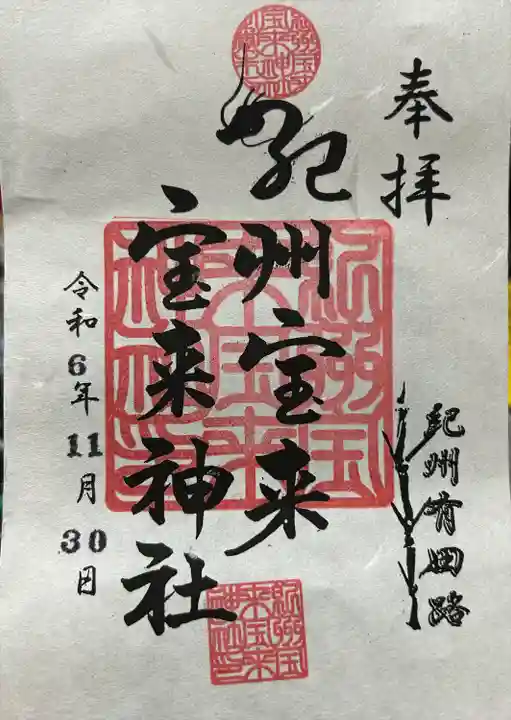 奉拝
紀州有田路
紀州宝来
宝来神社
令和6年11月30日